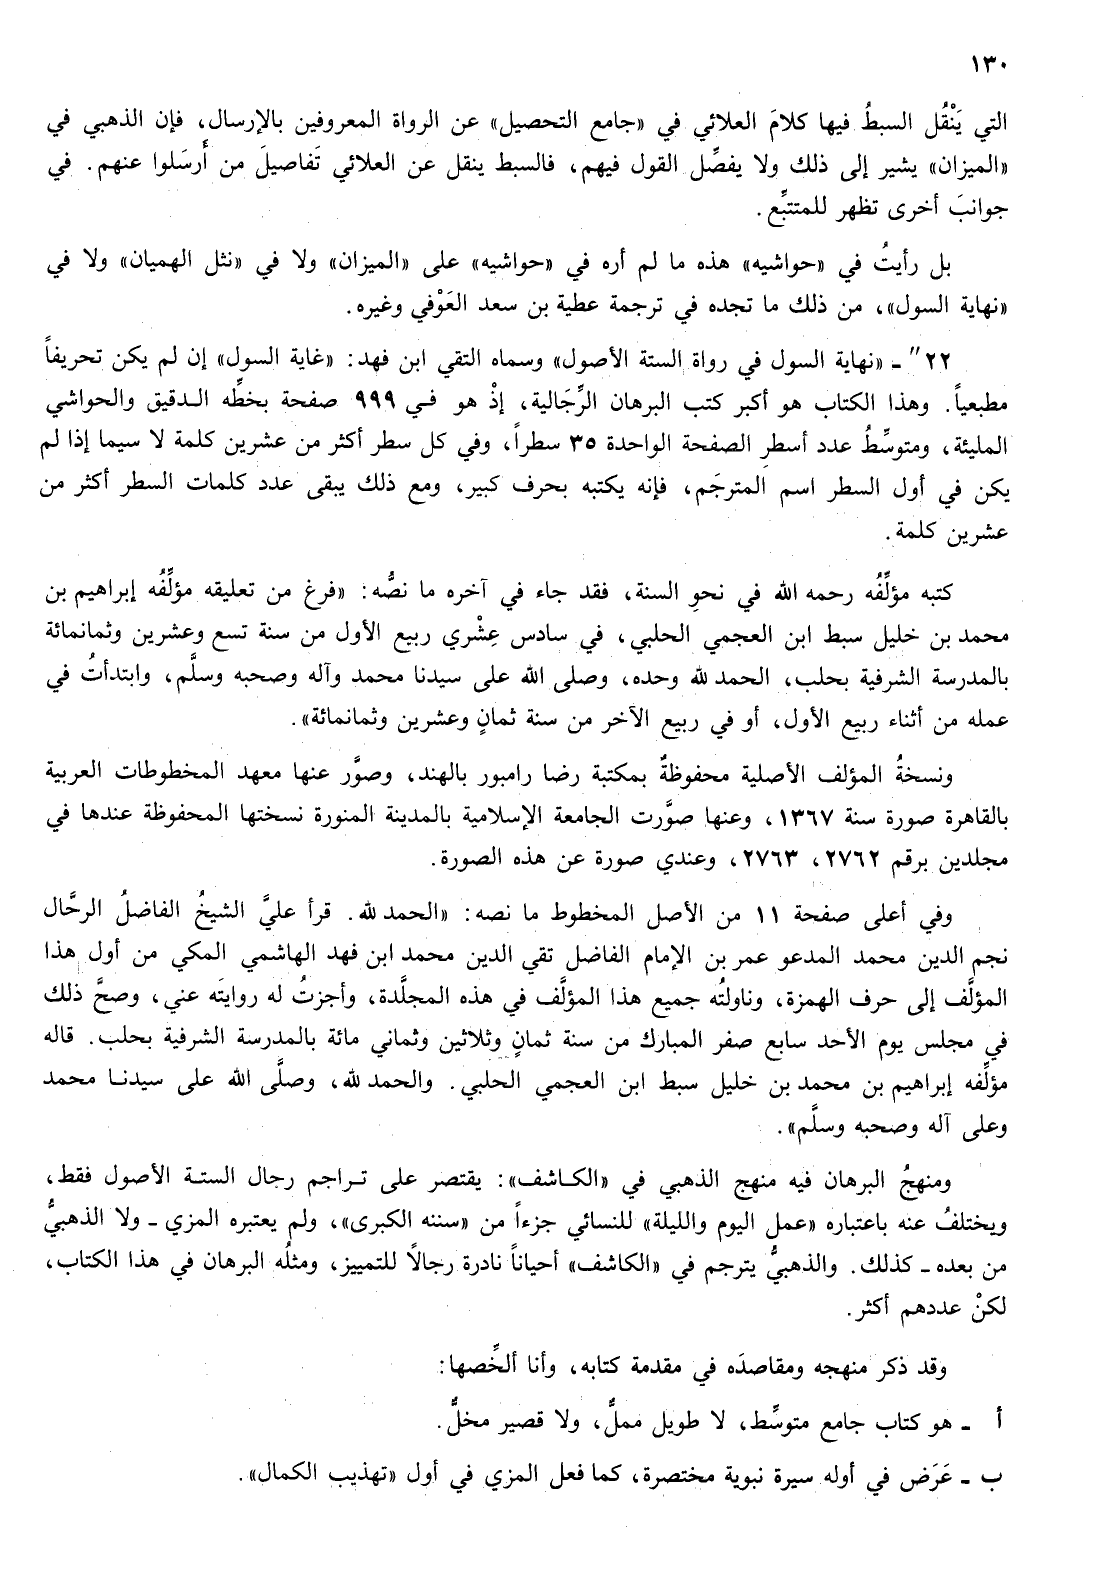 ١٣٠
التي يَنْقُل السبطُ فيها كلامَ العلائي في «جامع التحصيل» عن الرواة المعروفين بالإرسال، فإن الذهبي في
«الميزان» يشير إلى ذلك ولا يفصِّل القول فيهم، فالسبط ينقل عن العلائي تَفاصيلَ من أَرسَلوا عنهم. في
جوانبَ أخرى تظهر للمتتبِّع.
بل رأيتُ في «حواشيه» هذه ما لم أره في «حواشيه» على «الميزان» ولا في «نثل الهميان» ولا في
«نهاية السول»، من ذلك ما تجده في ترجمة عطية بن سعد العَوْفي وغيره.
٢٢" ـ «نهاية السول في رواة الستة الأصول» وسماه التقي ابن فهد: «غاية السول» إن لم يكن تحريفاً
مطبعياً. وهذا الكتاب هو أكبر كتب البرهان الرِّجَالية، إذْ هو في ٩٩٩ صفحة بخطِّه الدقيق والحواشي
المليئة، ومتوسِّطُ عدد أسطرِ الصفحة الواحدة ٣٥ سطراً، وفي كل سطر أكثر من عشرين كلمة لا سيما إذا لم
يكن في أول السطر اسم المترجَم، فإنه يكتبه بحرف كبير، ومع ذلك يبقى عدد كلمات السطر أكثر من
عشرين كلمة.
كتبه مؤلِّفُه رحمه الله في نحوِ السنة، فقد جاء في آخره ما نصُّه: «فرغ من تعليقه مؤلِّفُه إبراهيم بن
محمد بن خليل سبط ابن العجمي الحلبي، في سادس عِشْري ربيع الأول من سنة تسع وعشرين وثمانمائة
بالمدرسة الشرفية بحلب، الحمد لله وحده، وصلى الله على سيدنا محمد وآله وصحبه وسلَّم، وابتدأتُ في
عمله من أثناء ربيع الأول، أو في ربيع الآخر من سنة ثمانٍ وعشرين وثمانمائة».
ونسخةُ المؤلف الأصلية محفوظةٌ بمكتبة رضا رامبور بالهند، وصوَّر عنها معهد المخطوطات العربية
بالقاهرة صورة سنة ١٣٦٧، وعنها صوَّرت الجامعة الإسلامية بالمدينة المنورة نسختها المحفوظة عندها في
مجلدين برقم ٢٧٦٢، ٢٧٦٣، وعندي صورة عن هذه الصورة.
وفي أعلى صفحة ١١ من الأصل المخطوط ما نصه: «الحمد لله. قرأ عليَّ الشيخُ الفاضلُ الرحَّال
نجم الدين محمد المدعو عمر بن الإمام الفاضل تقي الدين محمد ابن فهد الهاشمي المكي من أول هذا
المؤلَّف إلى حرف الهمزة، وناولتُه جميع هذا المؤلَّف في هذه المجلَّدة، وأجزتُ له روايتَه عني، وصحَّ ذلك
في مجلس يوم الأحد سابع صفر المبارك من سنة ثمانٍ وثلاثين وثماني مائة بالمدرسة الشرفية بحلب. قاله
مؤلِّفه إبراهيم بن محمد بن خليل سبط ابن العجمي الحلبي. والحمد لله، وصلَّى الله على سيدنا محمد
وعلى آله وصحبه وسلَّم».
ومنهجُ البرهان فيه منهج الذهبي في «الكاشف»: يقتصر على تراجم رجال الستة الأصول فقط،
ويختلفُ عنه باعتباره «عمل اليوم والليلة» للنسائي جزءاً من «سننه الكبرى»، ولم يعتبره المزي ـ ولا الذهبيُّ
من بعده ـ كذلك. والذهبيُّ يترجم في «الكاشف» أحياناً نادرة رجالًا للتمييز، ومثلُه البرهان في هذا الكتاب،
لكنْ عددهم أكثر.
وقد ذكر منهجه ومقاصدَه في مقدمة كتابه، وأنا ألخِّصها:
أ ـ هو كتاب جامع متوسِّط، لا طويل مملٌّ، ولا قصير مخلٌّ.
ب ـ عَرَض في أوله سيرة نبوية مختصرة، كما فعل المزي في أول «تهذيب الكمال».